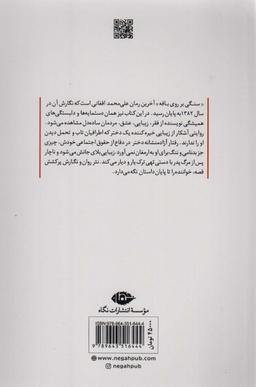 «سنگی بر روی بافه» آخرین رمان علی‌محمد افغانی است که نگارش آن در
سال ۱۳۸۲ به پایان رسید. در این کتاب نیز همان دستمایه‌ها و دلبستگی‌های
همیشگی نویسنده از فقر، زیبایی، عشق، مردمان ساده‌دل مشاهده می‌شود.
روایتی آشکار از زیبایی خیره‌کننده یک دختر که اطرافیان تاب و تحمل دیدن
او را ندارند. رفتار آزادمنشانه دختر در دفاع از حقوق اجتماعی خودش، چیزی
جز بدنامی و ننگ برای او به ارمغان نمی‌آورد. زیبایی بلای جانش می‌شود و ناچار
پس از مرگ پدر با دستی تهی ترک یار و دیار می‌کند. نثر روان و نگارش پرکشش
قصه، خواننده را تا پایان داستان نگه می‌دارد.
مؤسسهٔ انتشارات نگاه
ISBN: 978-964-351-644-4
9 789643 516444
۴۵۰۰۰ تومان
www.negahpub.com
negahpub